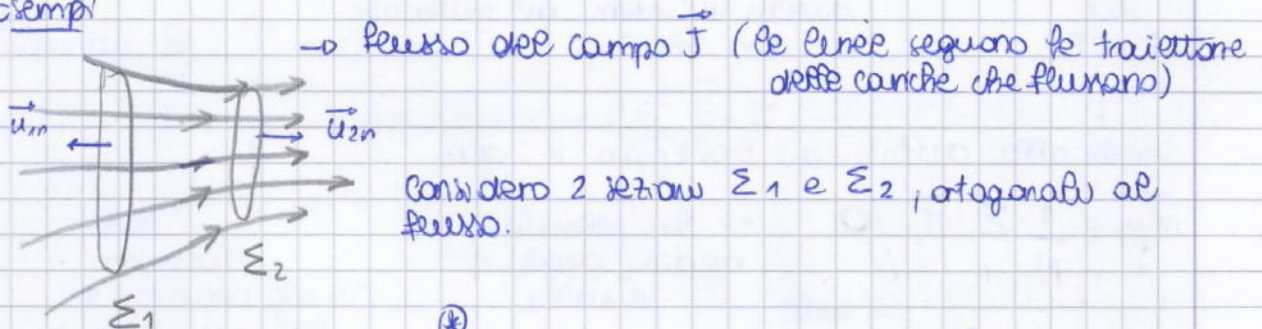 Esempi
→ flusso del campo J⃗ (le linee seguono le traiettorie
delle cariche che fluiscono)
u⃗₁ₙ
u⃗₂ₙ
considero 2 sezioni Σ1 e Σ2, ortogonali al
flusso.
Σ2
Σ1
(*)